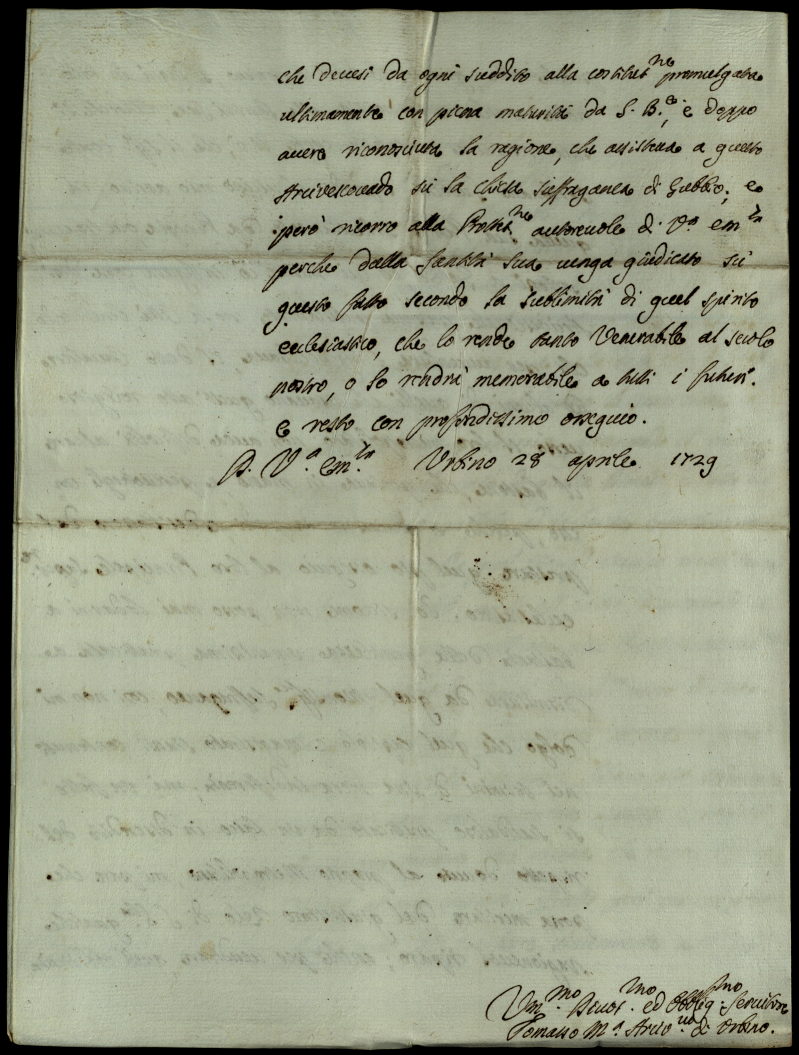 che devesi da ogni suddito alla costitut.ne promulgata
ultimamente con piena maturità da S. B.e, e doppo
avere riconosciuta la ragione, che assisteva a questo
Arcivescovado su la chiesa suffraganea di Gubbio; e
però ricorro alla Protet.ne autorevole di V.a em.za
perche dalla Santità Sua venga giudicato su
questo fatto secondo la sublimità di quel spirito
ecclesiastico, che lo rende tanto Venerabile al secolo
nostro, e lo rendrà memorabile a tutti i futuri.
e resto con profondissimo ossequio.
D. V.a em.za Urbino 28 aprile 1729
Um.mo Devot.mo ed Obblig.mo Servitore
Tomasso M.a Arciv.o di Urbino.